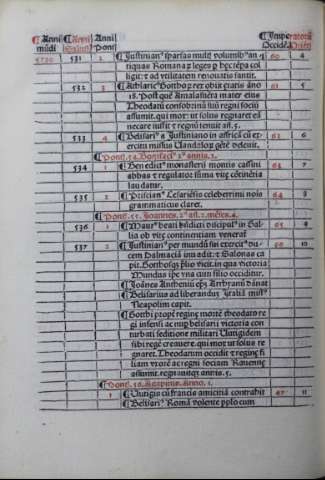 Anni mūdi Anni Salutis Anni Pont Imperatorū Occidēt Oriēt
5730 531 2 ¶ Justinianus sparsas multis voluminibus an 60 4
tiquas Romanorum leges per breviora
ligit: et ad vtilitatem renouatas sancit.
532 3 ¶ Athlaric Gotthorum rex obijt gratis año 61 5
18. Post quē Amalasuēta mater eius
Theodatū consobrinū suū regni socium
assumit. qui mox: vt solus regnaret ei
necare iussit et regnū tenuit añ. 5.
533 4 ¶ Belisarius a Justiniano in africā cū ex 62 6
ercitu missus Wandalorum gētē deleuit.
¶ Pont. 54. Bonifacij 2. annis 2.
534 1 ¶ Benedictus monasterij montis cassini 63 7
abbas et regulator summa vite cōtinētia
laudatur.
535 2 ¶ Priscianus Cesariēsis celeberrimus noīs 64 8
grammaticus claret.
¶ Pont. 55. Joannes. 2. ās. 2. mēses. 4.
536 1 ¶ Maurus beati bñdicti discipulus in Gal
lia ob vite continentiam venerat
537 2 ¶ Justinianus per mundū suū exercitū du 66 10
cem Dalmaciā inuadit: et Salonas ca
pit. Gotthosque prelio vicit. in qua victoria
Mundus ipse vna cum filio occiditur.
¶ Belisarius ad liberandus Italiā missus
Neapolim capit.
¶ Gotthi propter reginę mortē theodato re
gi infensi ac magis belisarii victoria con
turbati seditione militari Vuitigidem
sibi regē creauere. qui mox vt solus re
gnaret. Theodatum occidit et reginę fi
liam vxorē ac regni sociam Rauennę
assumit. regnauitque annis. 5.
¶ Pont. 56. Agapitus. Anno. 1.
1 ¶ Vuitigis cū francis amicitiā contrahit 67 11
¶ Belisarius Romā volente populo cum